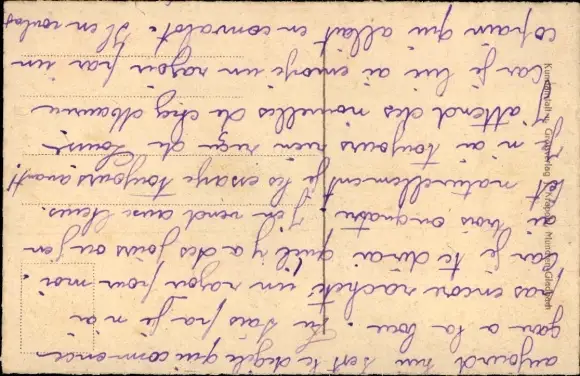 aujourd hui sest le dégèle qui commence
gare a la boue. Tu sais pa je n ai
pas encore racheté un rasoir pour moi.
Car je te dirai qu'il y a des jours ou j'en
ai trois ou quatre j'en vend
et naturellement je les essaye toujours avant!
n ai toujours rien reçu de Louise
j attend des nouvelles de chez Maurice
Car je lui ai envoyé un rasoir par un
copain qui allait en convalot. Il en